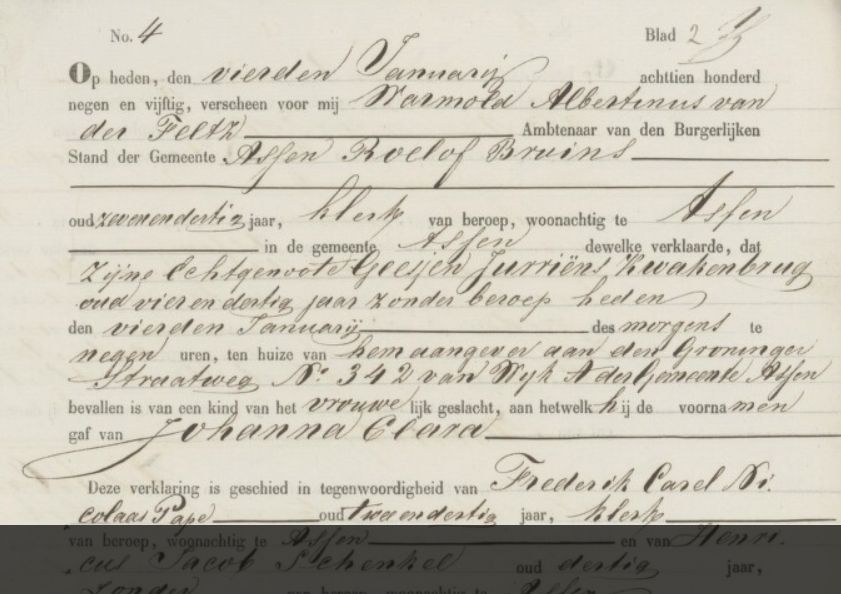 No. 4 Blad 2
Op heden, den vierden Januarij achttien honderd
negen en vijftig, verscheen voor mij Warmold Albertinus van
der Feltz Ambtenaar van den Burgerlijken
Stand der Gemeente Assen Roelof Bruins
oud zevenendertig jaar, klerk van beroep, woonachtig te Assen
in de gemeente Assen dewelke verklaarde, dat
Zijne Echtgenoote Geesjen Jurriëns Kwakenbrug
oud vier en dertig jaar zonder beroep heden
den vierden Januarij des morgens te
negen uren, ten huize van hem aangever aan den Groninger
Straatweg No 342 van Wijk A der Gemeente Assen
bevallen is van een kind van het vrouwelijk geslacht, aan hetwelk hij de voornamen
gaf van Johanna Clara
Deze verklaring is geschied in tegenwoordigheid van Frederik Carel Ni-
colaas Pape oud twee en dertig jaar, klerk
van beroep, woonachtig te Assen en van Henri-
cus Jacob Schenkel oud dertig jaar,
zonder van beroep, woonachtig te Assen